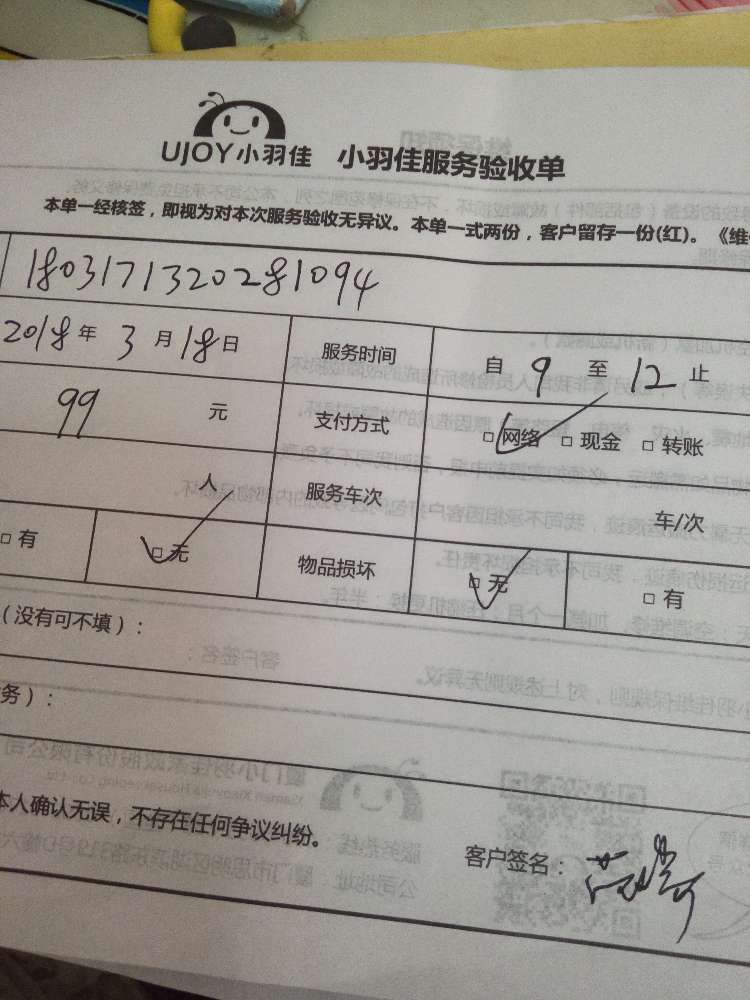 UJOY小羽佳 小羽佳服务验收单
本单一经核签，即视为对本次服务验收无异议。本单一式两份，客户留存一份(红)。《维
180317132028 1094
2018年 3 月 18日 服务时间 自 9 至 12 止
99 元 支付方式 □ 网络 □ 现金 □ 转账
人 服务车次 车/次
□ 有 □ 无 物品损坏 □ 无 □ 有
（没有可不填）：
务）：
本人确认无误，不存在任何争议纠纷。
客户签名：